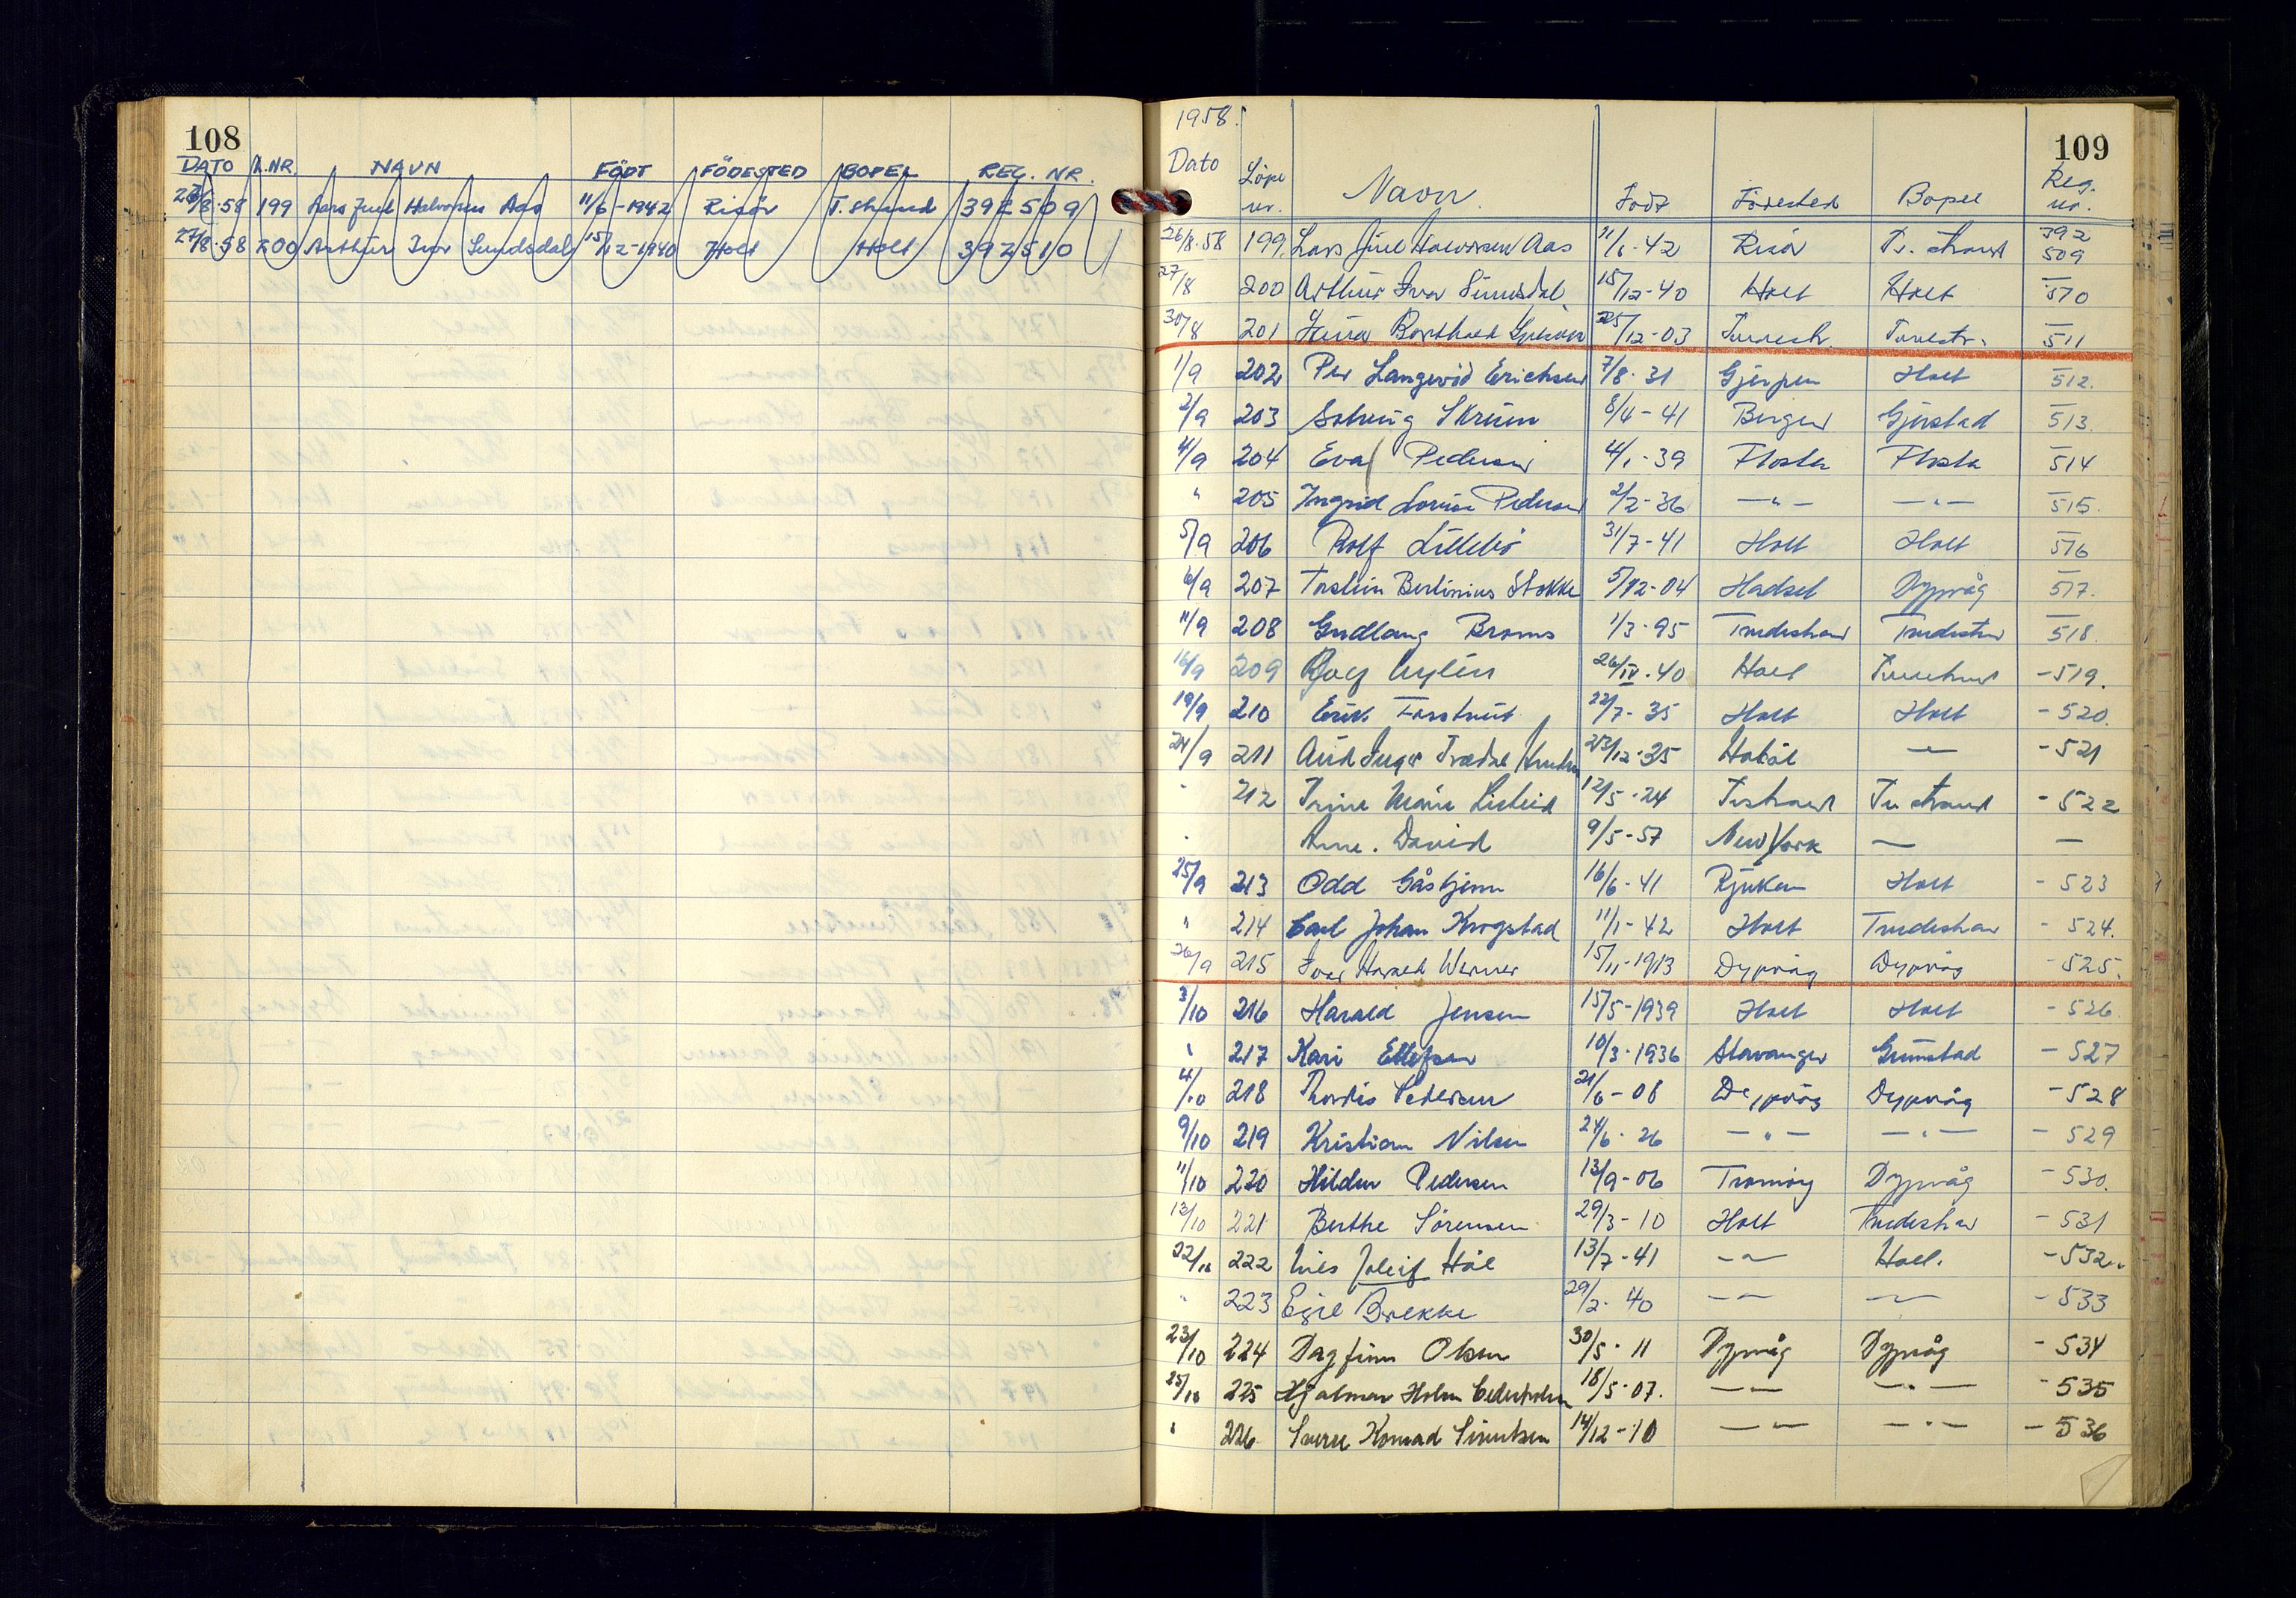 108
DATO L.NR. NAVN FÖDT FÖDESTED BOPEL REG. NR.
26/8.58 199 Lars Juel Halvorsen Aas 11/6-1942 Risör T. strand 392509
27/8.58 200 Arthur Ivar Sundsdal 15/12-1940 Holt Holt 392510
109
1958.
Dato Löpe nr. Navn Födt Födested Bopel Reg. nr.
26/8.58 199. Lars Juel Halvorsen Aas 11/6-42 Risör Tv. strand 392 509
27/8 200 Arthur Ivar Sundsdal 15/12-40 Holt Holt — 510
30/8 201 25/12-03 Tvedestr. Tvedestr. — 511
1/9 202 Per Langevid Erichsen 7/8-31 Gjerpen Holt — 512.
2/9 203 Solveig Skrum 8/4-41 Bergen Gjerstad — 513.
4/9 204 Eva Pedersen 4/1-39 Flosta Flosta — 514
" 205 Ingrid Lovise Pedersen 2/2-36 —"— —"— — 515.
5/9 206 Rolf Lillebö 31/7-41 Holt Holt — 516
6/9 207 Torstein Bertinius Stokke 5/12-04 Hadsel Dypvåg — 517.
11/9 208 Gudlaug Broms 1/3-95 Tvedestrand Tvedestr — 518.
16/9 209 Roly Nylén 26/IV.40 Holt Tvedestrand - 519.
19/9 210 Erik Fosstveit 22/7-35 Holt Holt - 520.
24/9 211 Aud Inger Trædal Knudsen 23/12-35 Hobøl — - 521
" 212 Trine Marie Lislevid 12/5-24 Tv.strand Tv. strand - 522
" Arne. David 9/5-57 New York — —
25/9 213 Odd Gåsbjenn 16/6-41 Rjukan Holt - 523
" 214 Carl Johan Krogstad 11/1-42 Holt Tvedestran - 524.
26/9 215 Ivar Harald Werner 15/11-1913 Dypvåg Dypvåg - 525.
3/10 216 Harald Jensen 15/5-1939 Holt Holt - 526.
" 217 Kari Ellefsen 10/3-1936 Stavanger Grimstad - 527
4/10 218 Thordis Pedersen 21/6-08 Dypvåg Dypvåg - 528
9/10 219 Kristian Nilsen 24/6-26 —"— —"— - 529
11/10 220 Hildur Pedersen 13/9-06 Tromöy Dypvåg - 530.
13/10 221 Berthe Sörensen 29/3-10 Holt Tvedestran - 531
22/10 222 Nils Joleif Hål 13/7-41 —"— Holt. - 532.
" 223 Egil Brekke 29/2-40 —"— —"— - 533
23/10 224 Dagfinn Olsen 30/5-11 Dypvåg Dypvåg - 534
25/10 225 Hjalmar Holm Cederholm 18/5-07. —"— —"— - 535
" 226. Sverre Konrad Simonsen 14/12-10 —"— —"— - 536